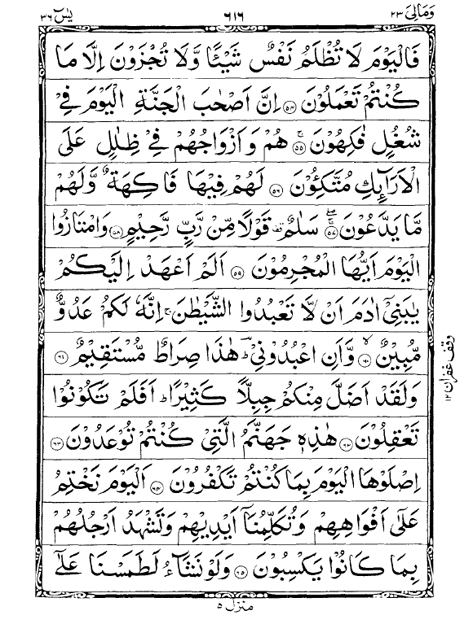 وَمَالِیَ ٢٣ ٦١٦ یٰسٓ ٣٦
فَالْیَوْمَ لَا تُظْلَمُ نَفْسٌ شَیْئًا وَّلَا تُجْزَوْنَ اِلَّا مَا
كُنْتُمْ تَعْمَلُوْنَ ﴿٥٤﴾ اِنَّ اَصْحٰبَ الْجَنَّةِ الْیَوْمَ فِیْ
شُغُلٍ فٰكِهُوْنَ ﴿٥٥﴾ هُمْ وَاَزْوَاجُهُمْ فِیْ ظِلٰلٍ عَلَی
الْاَرَآىِٕكِ مُتَّكِـُٔوْنَ ﴿٥٦﴾ لَهُمْ فِیْهَا فَاكِهَةٌ وَّلَهُمْ
مَّا یَدَّعُوْنَ ﴿٥٧﴾ سَلٰمٌ قَوْلًا مِّنْ رَّبٍّ رَّحِیْمٍ ﴿٥٨﴾ وَامْتَازُوا
الْیَوْمَ اَیُّهَا الْمُجْرِمُوْنَ ﴿٥٩﴾ اَلَمْ اَعْهَدْ اِلَیْكُمْ
یٰبَنِیْۤ اٰدَمَ اَنْ لَّا تَعْبُدُوا الشَّیْطٰنَ ۚ اِنَّهٗ لَكُمْ عَدُوٌّ
مُّبِیْنٌ ﴿٦٠﴾ وَّاَنِ اعْبُدُوْنِیْ ؔ هٰذَا صِرَاطٌ مُّسْتَقِیْمٌ ﴿٦١﴾
وَلَقَدْ اَضَلَّ مِنْكُمْ جِبِلًّا كَثِیْرًا ؕ اَفَلَمْ تَكُوْنُوْا
تَعْقِلُوْنَ ﴿٦٢﴾ هٰذِهٖ جَهَنَّمُ الَّتِیْ كُنْتُمْ تُوْعَدُوْنَ ﴿٦٣﴾
اِصْلَوْهَا الْیَوْمَ بِمَا كُنْتُمْ تَكْفُرُوْنَ ﴿٦٤﴾ اَلْیَوْمَ نَخْتِمُ
عَلٰۤی اَفْوَاهِهِمْ وَتُكَلِّمُنَاۤ اَیْدِیْهِمْ وَتَشْهَدُ اَرْجُلُهُمْ
بِمَا كَانُوْا یَكْسِبُوْنَ ﴿٦٥﴾ وَلَوْ نَشَآءُ لَطَمَسْنَا عَلٰۤی
وقف غفران ١٢
منزل ٥